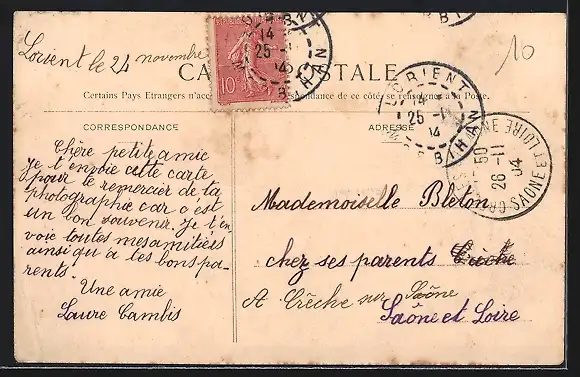 Lorient le 24 novembre
CA POSTALE
10
Certains Pays Etrangers n'acc pondance de ce côté se renseigner à la Poste.
10c
LORIENT
14
25 -11
04
MORBIHAN
LORIENT
14
25 -11
04
MORBIHAN
SAONE ET LOIRE
50
26 -11
04
CORRESPONDANCE
ADRESSE
Chère petite amie
Je t'envoie cette carte
pour te remercier de ta
photographie car c'est
un bon souvenir. Je t'en
voie toutes mes amitiés
ainsi qu'a tes bons pa-
rents.
Une amie
Laure Cambis
Mademoiselle Bleton
chez ses parents Crèche
A Crèche sur Saône
Saône et Loire